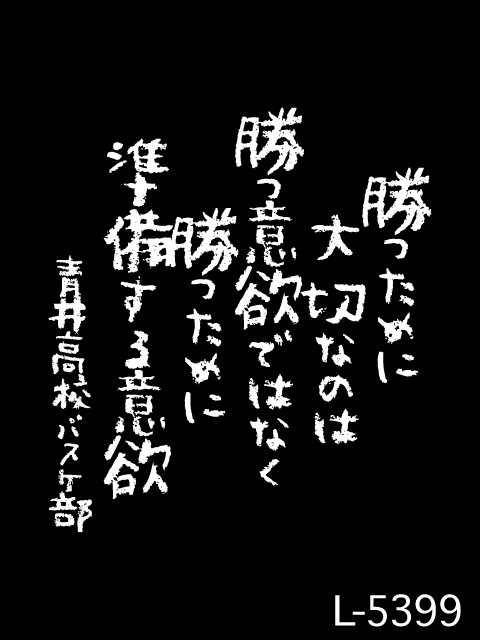 勝つために
大切なのは
勝つ意欲ではなく
勝つために
準備する意欲
青井高松バスケ部
L-5399